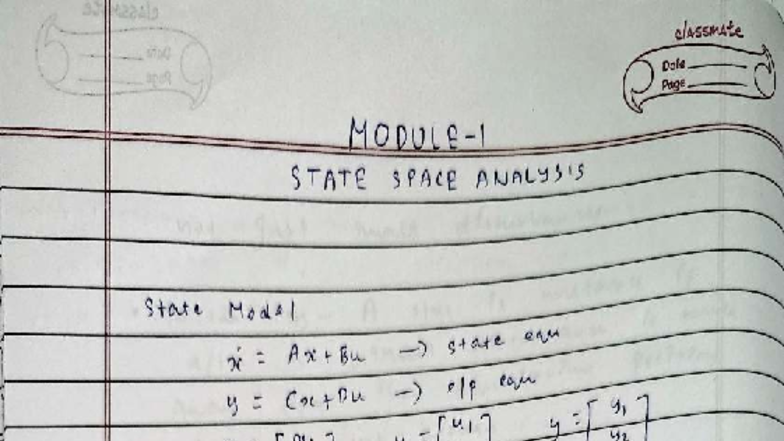 classmate
Date
Page
MODULE-1
STATE SPACE ANALYSIS
State Model
ẋ = Ax + Bu → state equ
y = Cx + Du → o/p equ
u = [u1] y = [y1
y2]